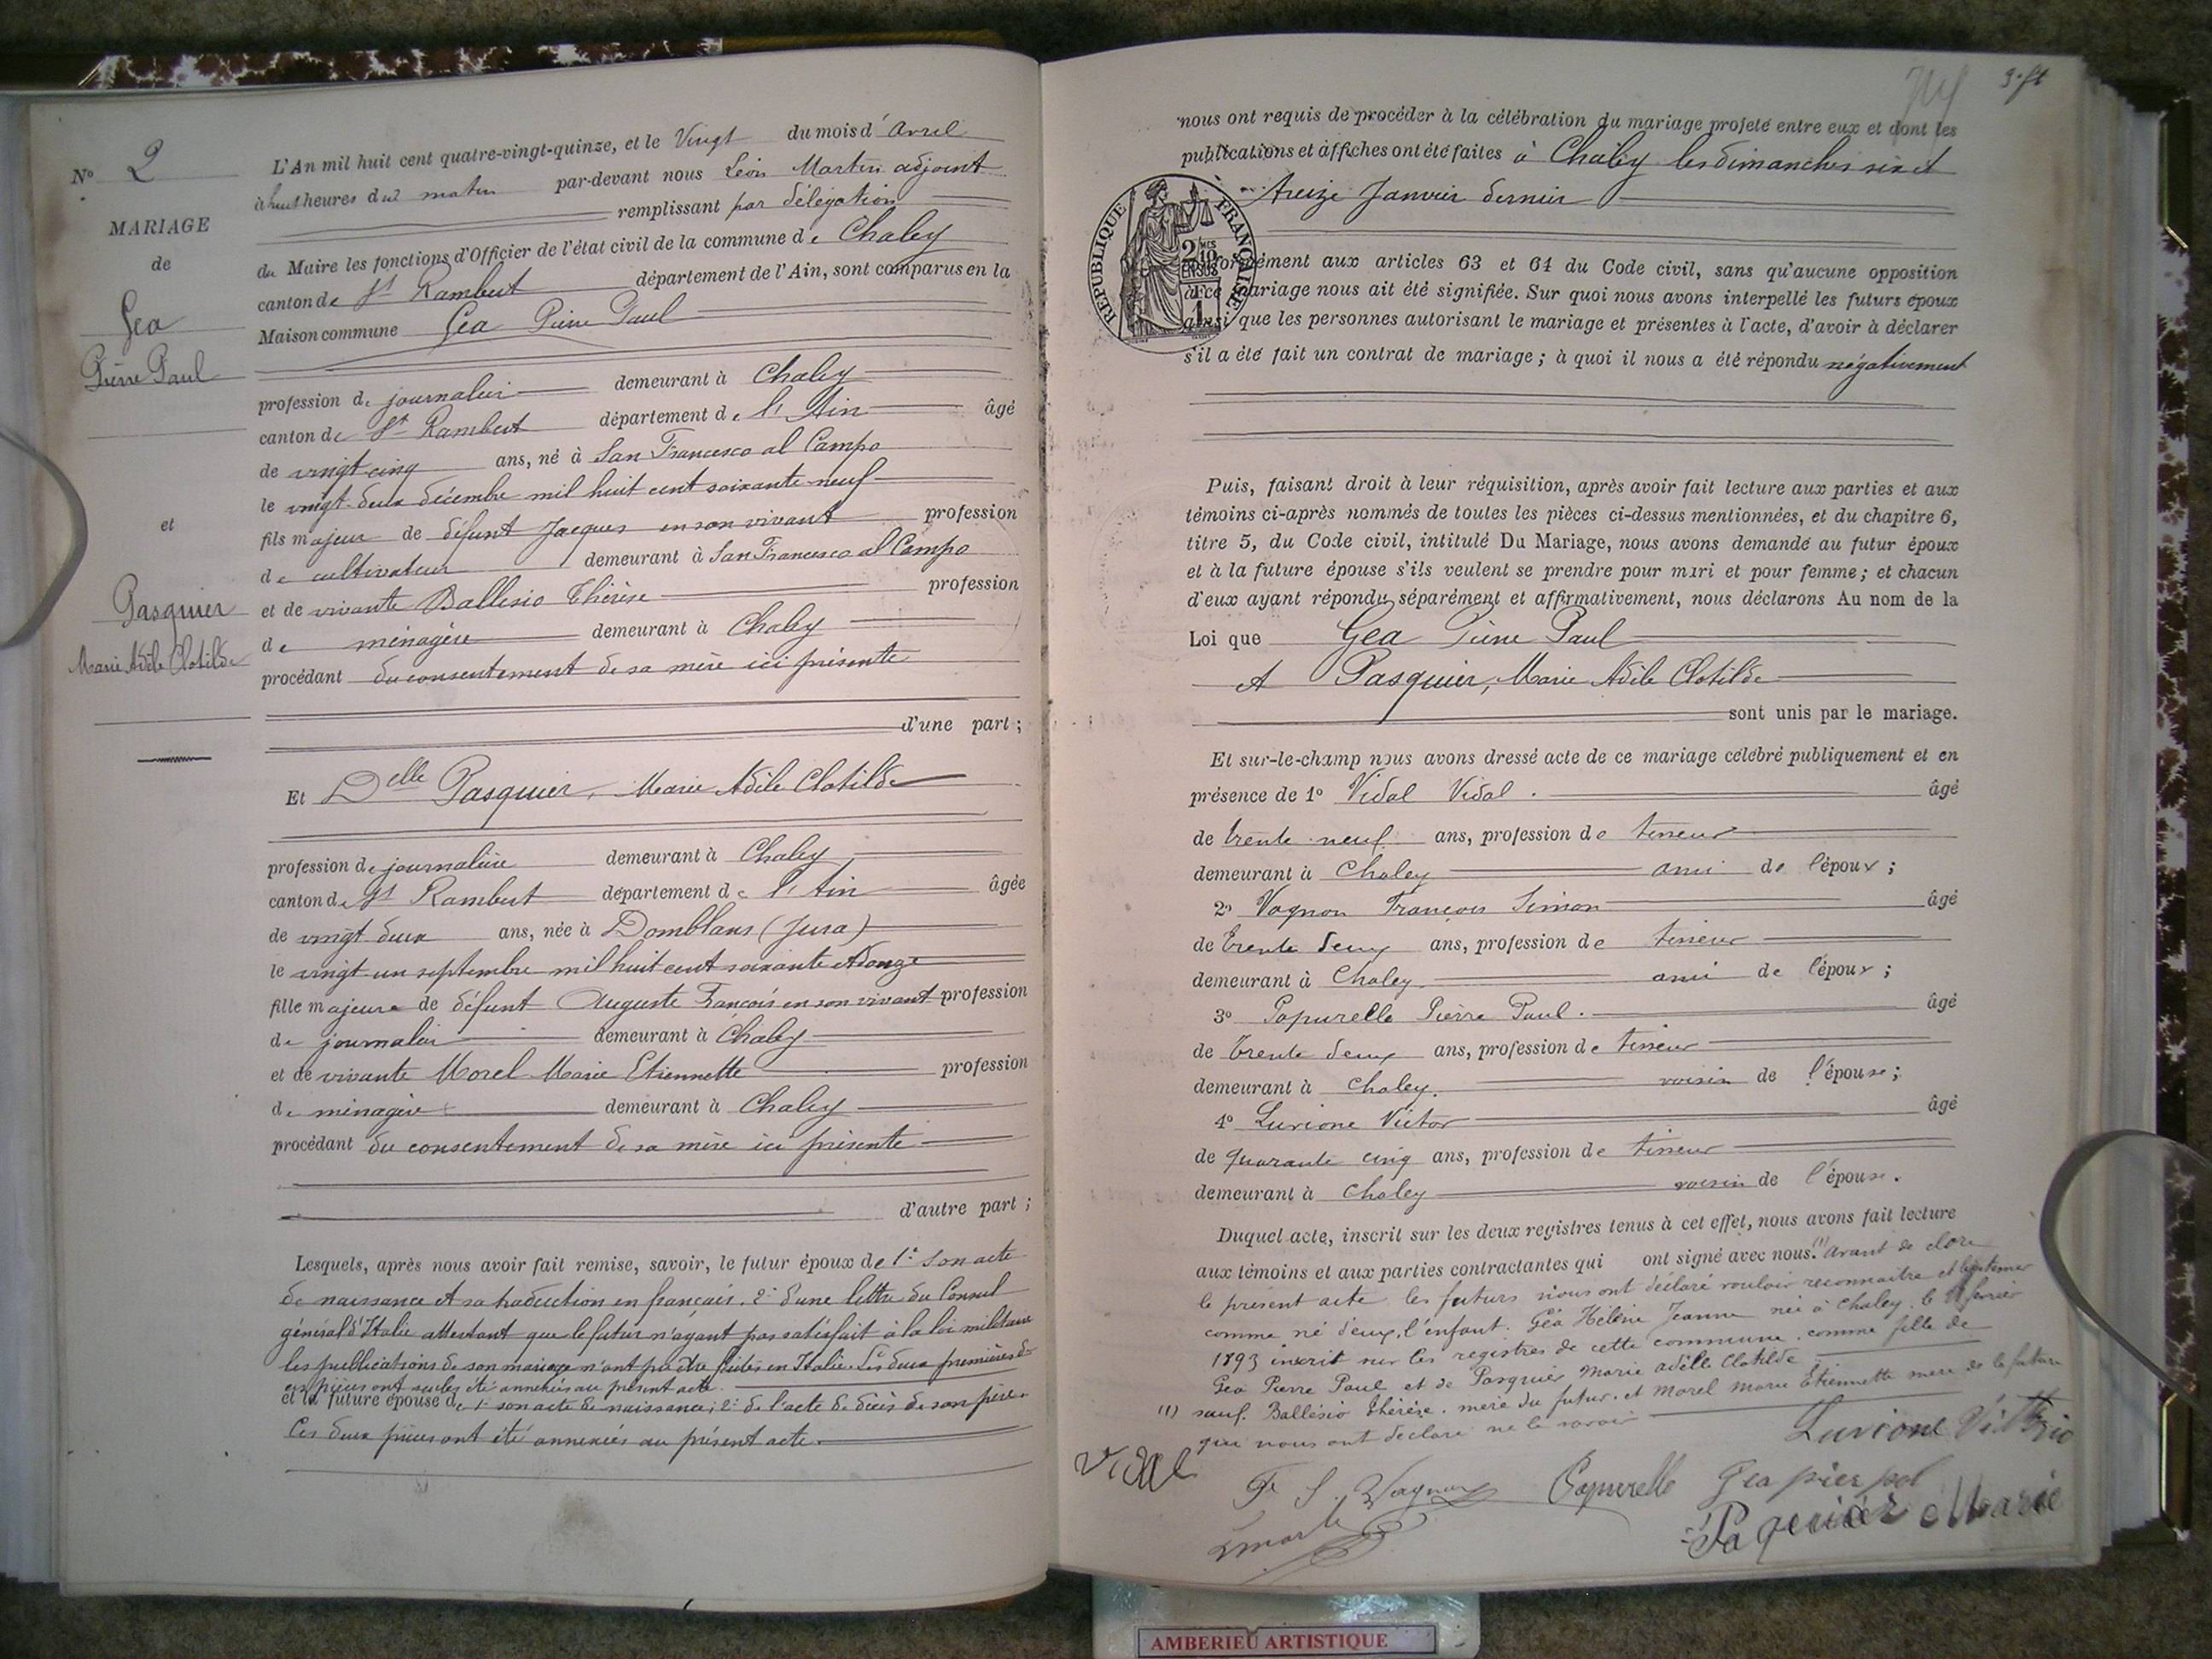 N° 2
MARIAGE
de
Gea
Pierre Paul
et
Pasquier
Marie Adèle Clotilde
L'An mil huit cent quatre-vingt-quinze, et le Vingt du mois d'Avril
à huit heures du matin par-devant nous Léon Martin adjoint
remplissant par délégation
du Maire les fonctions d'Officier de l'état civil de la commune de Chaley
canton de St Rambert département de l'Ain, sont comparus en la
Maison commune Gea Pierre Paul
profession de journalier demeurant à Chaley
canton de St Rambert département de l'Ain âgé
de vingt-cinq ans, né à San Francesco al Campo
le vingt-deux décembre mil huit cent soixante-neuf
fils majeur de défunt Jacques en son vivant profession
de cultivateur demeurant à San Francesco al Campo
et de vivante Ballesio Thérèse profession
de ménagère demeurant à Chaley
procédant du consentement de sa mère ici présente
d'une part ;
Et Delle Pasquier, Marie Adèle Clotilde
profession de journalière demeurant à Chaley
canton de St Rambert département de l'Ain âgée
de vingt deux ans, née à Domblans (Jura)
le vingt-un septembre mil huit cent soixante et douze
fille majeure de défunt Auguste François en son vivant profession
de journalier demeurant à Chaley
et de vivante Morel Marie Etiennette profession
de ménagère demeurant à Chaley
procédant du consentement de sa mère ici présente
d'autre part ;
Lesquels, après nous avoir fait remise, savoir, le futur époux de 1° son acte
de naissance et sa traduction en français. 2° d'une lettre du Consul
général d'Italie attestant que le futur n'ayant pas satisfait à la loi militaire
les publications de son mariage n'ont pu être faites en Italie. Les deux premières de
ces pièces ont seules été annexées au présent acte.
et la future épouse de 1° son acte de naissance; 2° de l'acte de décès de son père.
Ces deux pièces ont été annexées au présent acte.
nous ont requis de procéder à la célébration du mariage projeté entre eux et dont les
publications et affiches ont été faites à Chaley les dimanches six et
treize Janvier dernier
RÉPUBLIQUE FRANÇAISE
2/10 EN SUS
1 F
conformément aux articles 63 et 64 du Code civil, sans qu'aucune opposition
à ce mariage nous ait été signifiée. Sur quoi nous avons interpellé les futurs époux
ainsi que les personnes autorisant le mariage et présentes à l'acte, d'avoir à déclarer
s'il a été fait un contrat de mariage ; à quoi il nous a été répondu négativement
Puis, faisant droit à leur réquisition, après avoir fait lecture aux parties et aux
témoins ci-après nommés de toutes les pièces ci-dessus mentionnées, et du chapitre 6,
titre 5, du Code civil, intitulé Du Mariage, nous avons demandé au futur époux
et à la future épouse s'ils veulent se prendre pour mari et pour femme ; et chacun
d'eux ayant répondu séparément et affirmativement, nous déclarons Au nom de la
Loi que Gea Pierre Paul
et Pasquier, Marie Adèle Clotilde
sont unis par le mariage.
Et sur-le-champ nous avons dressé acte de ce mariage célébré publiquement et en
présence de 1° Vidal Vidal. âgé
de trente-neuf ans, profession de tisseur
demeurant à Chaley ami de l'époux ;
2° Vagnon François Simon âgé
de trente deux ans, profession de tisseur
demeurant à Chaley ami de l'époux ;
3° Papurello Pierre Paul. âgé
de trente deux ans, profession de tisseur
demeurant à Chaley. voisin de l'épouse ;
4° Luvione Victor âgé
de quarante cinq ans, profession de tisseur
demeurant à Chaley voisin de l'épouse.
Duquel acte, inscrit sur les deux registres tenus à cet effet, nous avons fait lecture
aux témoins et aux parties contractantes qui ont signé avec nous. (1) Avant de clore
le présent acte les futurs nous ont déclaré vouloir reconnaître et légitimer
comme né d'eux, l'enfant. Géa Hélène Jeanne née à Chaley, le février
1893 inscrit sur les registres de cette commune. comme fille de
Gea Pierre Paul et de Pasquier Marie Adèle Clotilde
(1) sauf. Ballésio Thérèse. mère du futur. et Morel Marie Etiennette mère de la future
qui nous ont déclaré ne le savoir
Luvione Vittorio
Vidal
F S. Vagnon Papurello Gea pier pol
Paquier Marie